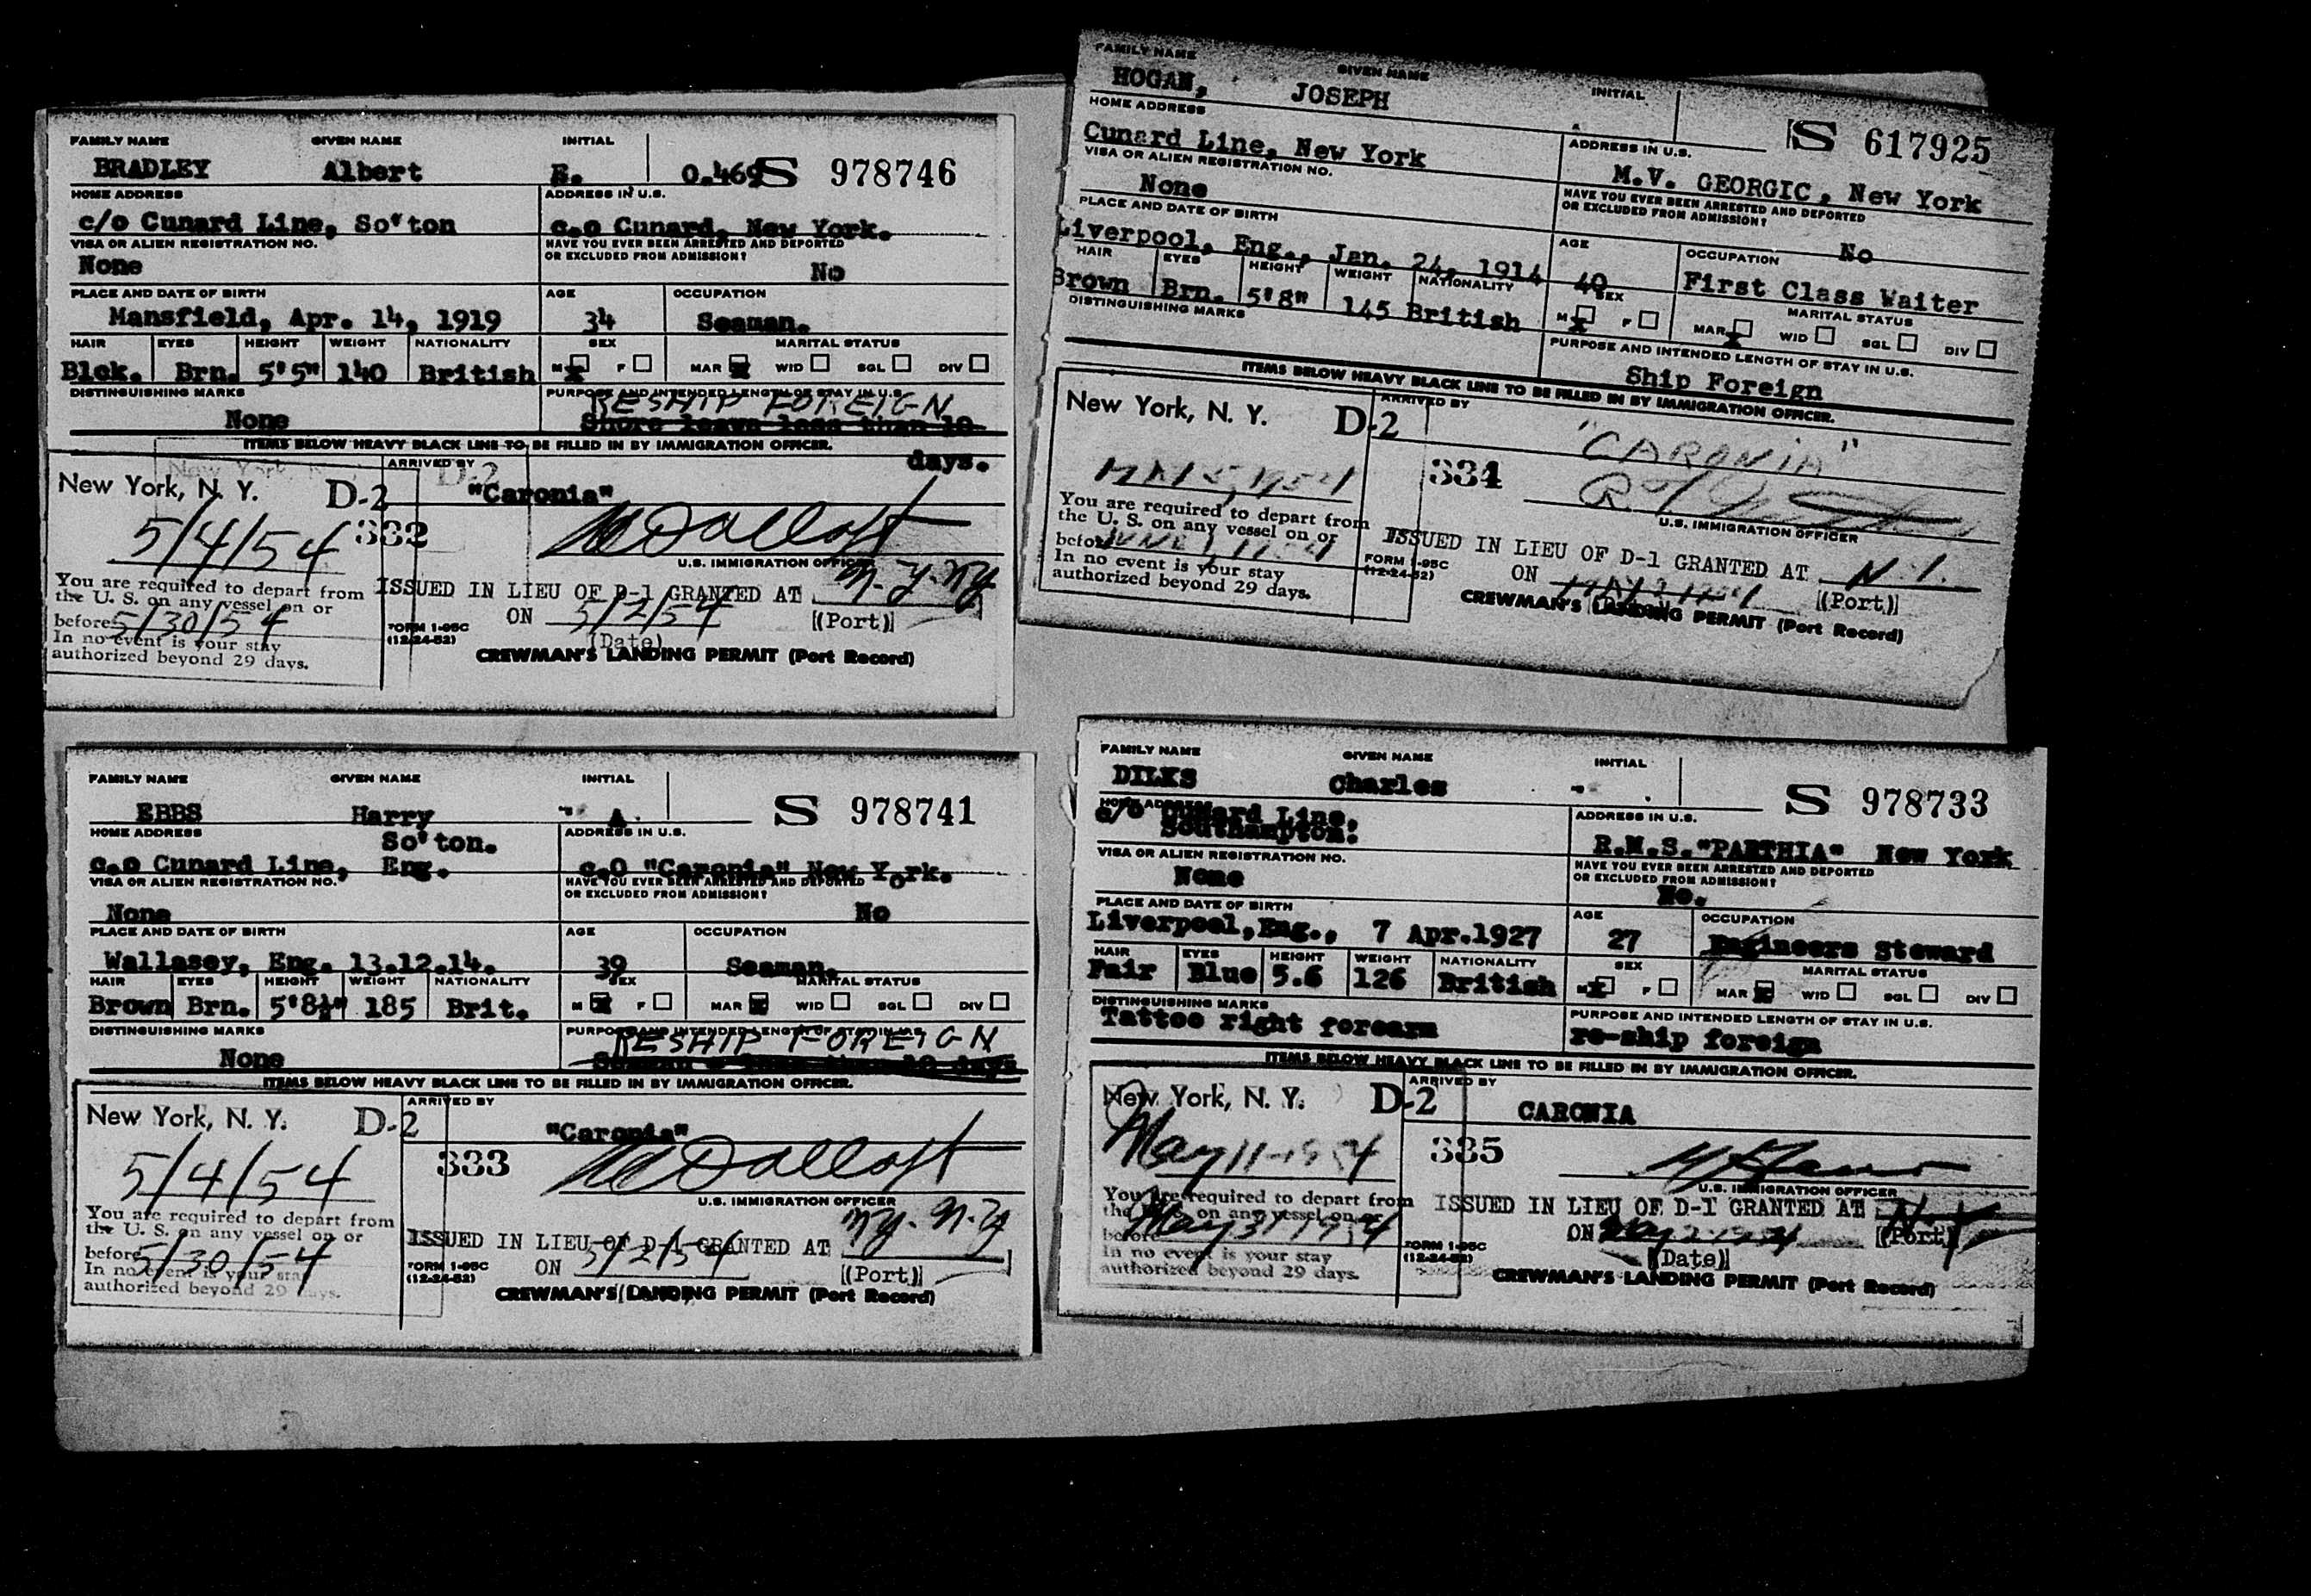 FAMILY NAME GIVEN NAME INITIAL
BRADLEY Albert E. 0.469 S 978746
HOME ADDRESS ADDRESS IN U.S.
c/o Cunard Line, So'ton c.o Cunard, New York.
VISA OR ALIEN REGISTRATION NO. HAVE YOU EVER BEEN ARRESTED AND DEPORTED
OR EXCLUDED FROM ADMISSION?
None No
PLACE AND DATE OF BIRTH AGE OCCUPATION
Mansfield, Apr. 14, 1919 34 Seaman.
HAIR EYES HEIGHT WEIGHT NATIONALITY SEX MARITAL STATUS
Blck. Brn. 5'5" 140 British M X F MAR X WID SGL DIV
DISTINGUISHING MARKS PURPOSE AND INTENDED LENGTH OF STAY IN U.S.
RESHIP FOREIGN
None Shore leave less than 10
ITEMS BELOW HEAVY BLACK LINE TO BE FILLED IN BY IMMIGRATION OFFICER.
days.
New York, N. Y. D-2 ARRIVED BY
"Caronia"
5/4/54 332
U.S. IMMIGRATION OFFICER
You are required to depart from
the U. S. on any vessel on or
before 5/30/54
In no event is your stay
authorized beyond 29 days.
ISSUED IN LIEU OF D-1 GRANTED AT N.Y. NY
ON 5/2/54 (Port)
(Date)
FORM I-95C
(12-24-52)
CREWMAN'S LANDING PERMIT (Port Record)
FAMILY NAME GIVEN NAME INITIAL
HOGAN, JOSEPH
S 617925
HOME ADDRESS ADDRESS IN U.S.
Cunard Line, New York M.V. GEORGIC, New York
VISA OR ALIEN REGISTRATION NO. HAVE YOU EVER BEEN ARRESTED AND DEPORTED
OR EXCLUDED FROM ADMISSION?
None No
PLACE AND DATE OF BIRTH AGE OCCUPATION
Liverpool, Eng., Jan. 24, 1914 40 First Class Waiter
HAIR EYES HEIGHT WEIGHT NATIONALITY SEX MARITAL STATUS
Brown Brn. 5'8" 145 British M X F MAR X WID SGL DIV
DISTINGUISHING MARKS PURPOSE AND INTENDED LENGTH OF STAY IN U.S.
Ship Foreign
ITEMS BELOW HEAVY BLACK LINE TO BE FILLED IN BY IMMIGRATION OFFICER.
New York, N. Y. D-2 ARRIVED BY
"CARONIA"
MAY 5, 1954 334
U.S. IMMIGRATION OFFICER
You are required to depart from
the U. S. on any vessel on or
before
In no event is your stay
authorized beyond 29 days.
ISSUED IN LIEU OF D-1 GRANTED AT N.Y.
ON MAY 2 1954 (Port)
FORM I-95C
(12-24-52)
CREWMAN'S LANDING PERMIT (Port Record)
FAMILY NAME GIVEN NAME INITIAL
EBBS Harry A. S 978741
HOME ADDRESS ADDRESS IN U.S.
So'ton.
c.o Cunard Line, Eng. c.O "Caronia" New York.
VISA OR ALIEN REGISTRATION NO. HAVE YOU EVER BEEN ARRESTED AND DEPORTED
OR EXCLUDED FROM ADMISSION?
None No
PLACE AND DATE OF BIRTH AGE OCCUPATION
Wallasey, Eng. 13.12.14. 39 Seaman.
HAIR EYES HEIGHT WEIGHT NATIONALITY SEX MARITAL STATUS
Brown Brn. 5'8½" 185 Brit. M X F MAR X WID SGL DIV
DISTINGUISHING MARKS PURPOSE AND INTENDED LENGTH OF STAY IN U.S.
RESHIP FOREIGN
None than 10 days
ITEMS BELOW HEAVY BLACK LINE TO BE FILLED IN BY IMMIGRATION OFFICER.
New York, N. Y. D-2 ARRIVED BY
"Caronia"
5/4/54 333
U.S. IMMIGRATION OFFICER
You are required to depart from
the U. S. on any vessel on or
before 5/30/54
In no event is your stay
authorized beyond 29 days.
ISSUED IN LIEU OF D-1 GRANTED AT NY. N.Y
ON 5/2/54 (Port)
FORM I-95C
(12-24-52)
CREWMAN'S LANDING PERMIT (Port Record)
FAMILY NAME GIVEN NAME INITIAL
DILKS Charles - S 978733
HOME ADDRESS ADDRESS IN U.S.
c/o Cunard Line,
Southampton. R.M.S."PARTHIA" New York
VISA OR ALIEN REGISTRATION NO. HAVE YOU EVER BEEN ARRESTED AND DEPORTED
OR EXCLUDED FROM ADMISSION?
None No.
PLACE AND DATE OF BIRTH AGE OCCUPATION
Liverpool,Eng., 7 Apr.1927 27 Engineers Steward
HAIR EYES HEIGHT WEIGHT NATIONALITY SEX MARITAL STATUS
Fair Blue 5.6 126 British M X F MAR X WID SGL DIV
DISTINGUISHING MARKS PURPOSE AND INTENDED LENGTH OF STAY IN U.S.
Tattoo right forearm re-ship foreign
ITEMS BELOW HEAVY BLACK LINE TO BE FILLED IN BY IMMIGRATION OFFICER.
New York, N. Y. D-2 ARRIVED BY
CARONIA
May 11-1954 335
U.S. IMMIGRATION OFFICER
You are required to depart from
the U. S. on any vessel on or
before May 31 1954
In no event is your stay
authorized beyond 29 days.
ISSUED IN LIEU OF D-1 GRANTED AT
ON May 2-1954 (Port)
(Date)
FORM I-95C
(12-24-52)
CREWMAN'S LANDING PERMIT (Port Record)